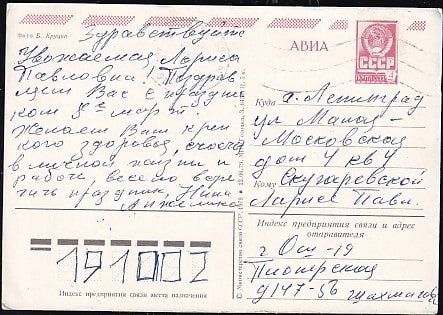 Фото Б. Круцко
Здравствуйте
Уважаемая Лариса
Павловна! Поздрав
ляем Вас с праздни
ком 8ое март.
Желаем Вам креп
кого здоровья, счастья
в личной жизни и
работе, весело встре
тить праздник. Нина
Анжелика
АВИА
СССР
Куда г. Ленинград
ул Мало-
Московская
дом 4 кв 4
Кому Скугаревской
Ларисе Павл.
Индекс предприятия связи и адрес
отправителя
г Ош-19
Пионерская
д 147-56 Шахматова
191002
Индекс предприятия связи места назначения
© Министерство связи СССР, 1979